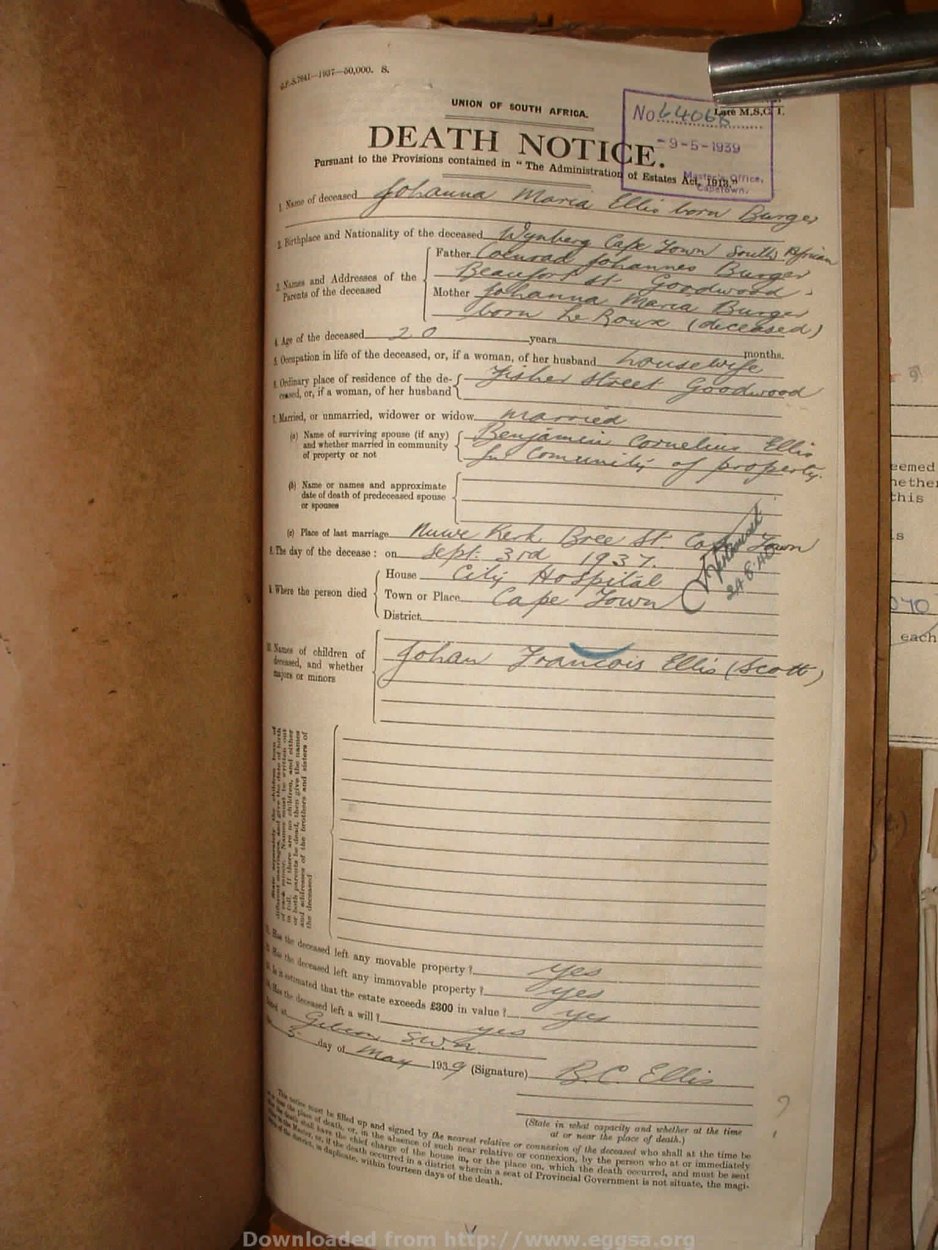 G.P.-S.7841—1937—50,000. S.
Late M.S.C. 1.
UNION OF SOUTH AFRICA.
No 64068
DEATH NOTICE.
- 9 - 5 - 1939
Pursuant to the Provisions contained in "The Administration of Estates Act, 1913."
Master's Office,
Capetown.
1. Name of deceased Johanna Maria Ellis born Burger
2. Birthplace and Nationality of the deceased Wynberg Cape Town South African
3. Names and Addresses of the Parents of the deceased
Father Johannes Burger
Beaufort St. Goodwood
Mother Johanna Maria Burger
born Le Roux (deceased)
4. Age of the deceased 20 years months.
5. Occupation in life of the deceased, or, if a woman, of her husband housewife
6. Ordinary place of residence of the deceased, or, if a woman, of her husband Fisher Street Goodwood
7. Married, or unmarried, widower or widow married
(a) Name of surviving spouse (if any) and whether married in community of property or not
Benjamin Cornelius Ellis
In Comunity of property.
(b) Name or names and approximate date of death of predeceased spouse or spouses
(c) Place of last marriage Nuwe Kerk Bree St. Cape Town
8. The day of the decease: on Sept. 3rd 1937.
9. Where the person died
House City Hospital
Town or Place Cape Town
District
24.6.40
10. Names of children of deceased, and whether majors or minors
Johan Francois Ellis (Scott)
State separately the children born of different marriages, and give the date of birth of each minor. Names must be written out in full. If there are no children, and either or both parents be dead, then give the names and addresses of the brothers and sisters of the deceased
11. Has the deceased left any movable property? yes
12. Has the deceased left any immovable property? yes
13. Is it estimated that the estate exceeds £300 in value? yes
14. Has the deceased left a will? yes
Dated at Gibeon S.W.A.
5 day of May 1939 (Signature) B.C. Ellis
(State in what capacity and whether at the time
at or near the place of death.)
This notice must be filled up and signed by the nearest relative or connexion of the deceased who shall at the time be
at or near the place of death, or, in the absence of such near relative or connexion, by the person who at or immediately
after the death shall have the chief charge of the house in, or the place on, which the death occurred, and must be sent
to the Master, or, if the death occurred in a district wherein a seat of Provincial Government is not situate, the magi-
of the district, in duplicate, within fourteen days of the death.
eemed
this
is
each
Downloaded from http://www.eggsa.org